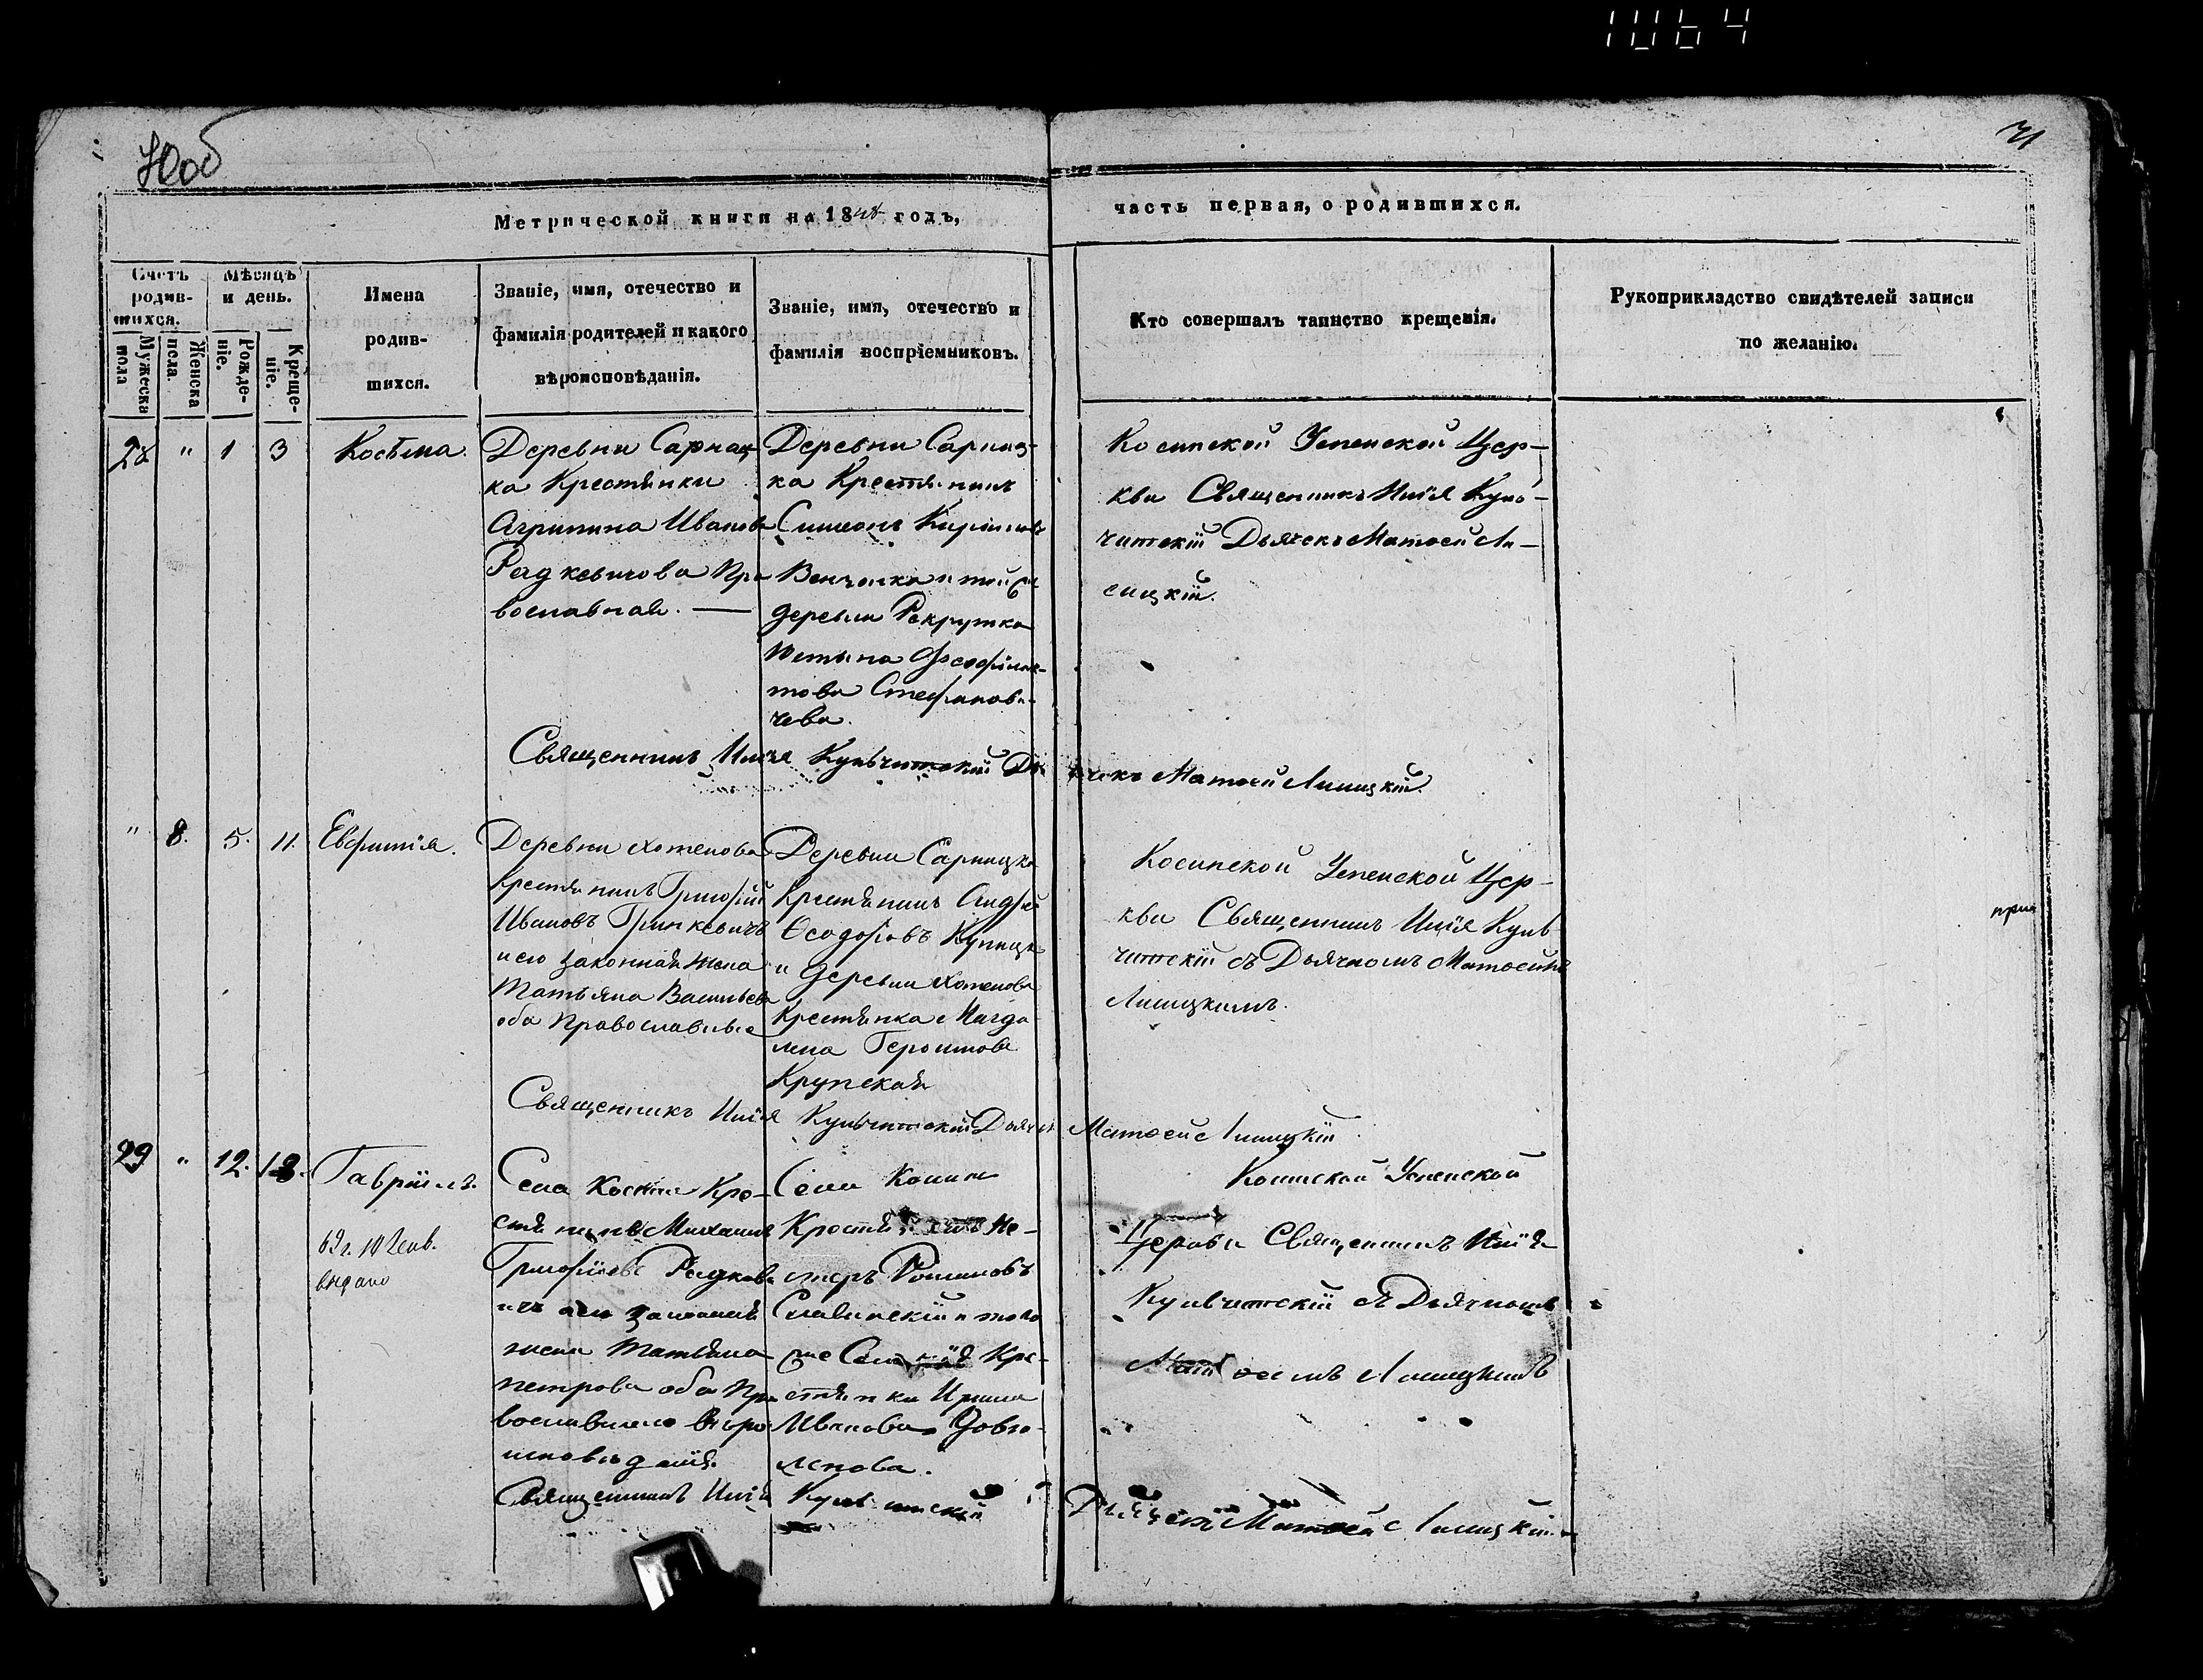 1064
70об
71
Метрической книги на 1848 годъ,
часть первая, о родившихся.
Счетъ родив-шихся.
Мужеска пола
Женска пола.
Мѣсяцъ и день.
Рожде-ніе.
Креще-ніе.
Имена
родив-
шихся.
Званіе, имя, отечество и
фамилія родителей и какого
вѣроисповѣданія.
Званіе, имя, отечество и
фамилія воспріемниковъ.
Кто совершалъ таинство крещенія.
Рукоприкладство свидѣтелей записи
по желанію.
28 " 1 3
Косьма.
Деревни Сарнац-
ка Крестянки
Агрипина Иванова
Радкевичова Пра-
вославная. —
Деревни Сарнац-
ка Крестянинъ
Симеонъ
и той
деревни Рекрутка
Стефанови-
чева.
Косинской Успенской Цер-
кви Священникъ Илія Куль-
читскій Дьячекъ Матѳей Ли-
сицкій.
Священникъ Илія Кульчитскій Дья
чекъ Матѳей Лисицкій.
" 8. 5. 11.
Евфимія.
Деревни Хотенова
Крестянинъ Григорій
Ивановъ Гринкевичъ
и его законная жена
Татьяна Васильева
оба Православные
Деревни Сарницка
Крестянинъ Андрей
Ѳеодоровъ
и деревни Хотенова
Крестянка Магда
лена
Крупская
Косинской Успенской Цер-
кви Священникъ Илія Куль
читскій съ Дьячкомъ Матѳеемъ
Лисицкимъ.
при
Священникъ Илія Кульчитскій Дьячекъ
Матѳей Лисицкій.
29 " 12. 13.
Гавріилъ.
выдано
Села Косина Кре-
стянинъ Михаилъ
Григоріевъ Радкеви
ичъ и его законная
жена Татьяна
Петрова оба Пра
вославнаго Вѣро
исповѣданія.
Села Косина
Крестянинъ Не-
стеръ Романовъ
Славинскій и того
же Села Кре-
стянка Ирина
Иванова Довго-
лепова.
Косинской Успенской
Церкви Священникъ Илія
Кульчитскій съ Дьячкомъ
Матѳеемъ Лисицкимъ
Священникъ Илія Кульчитскій
Дьячекъ Матѳей Лисицкій